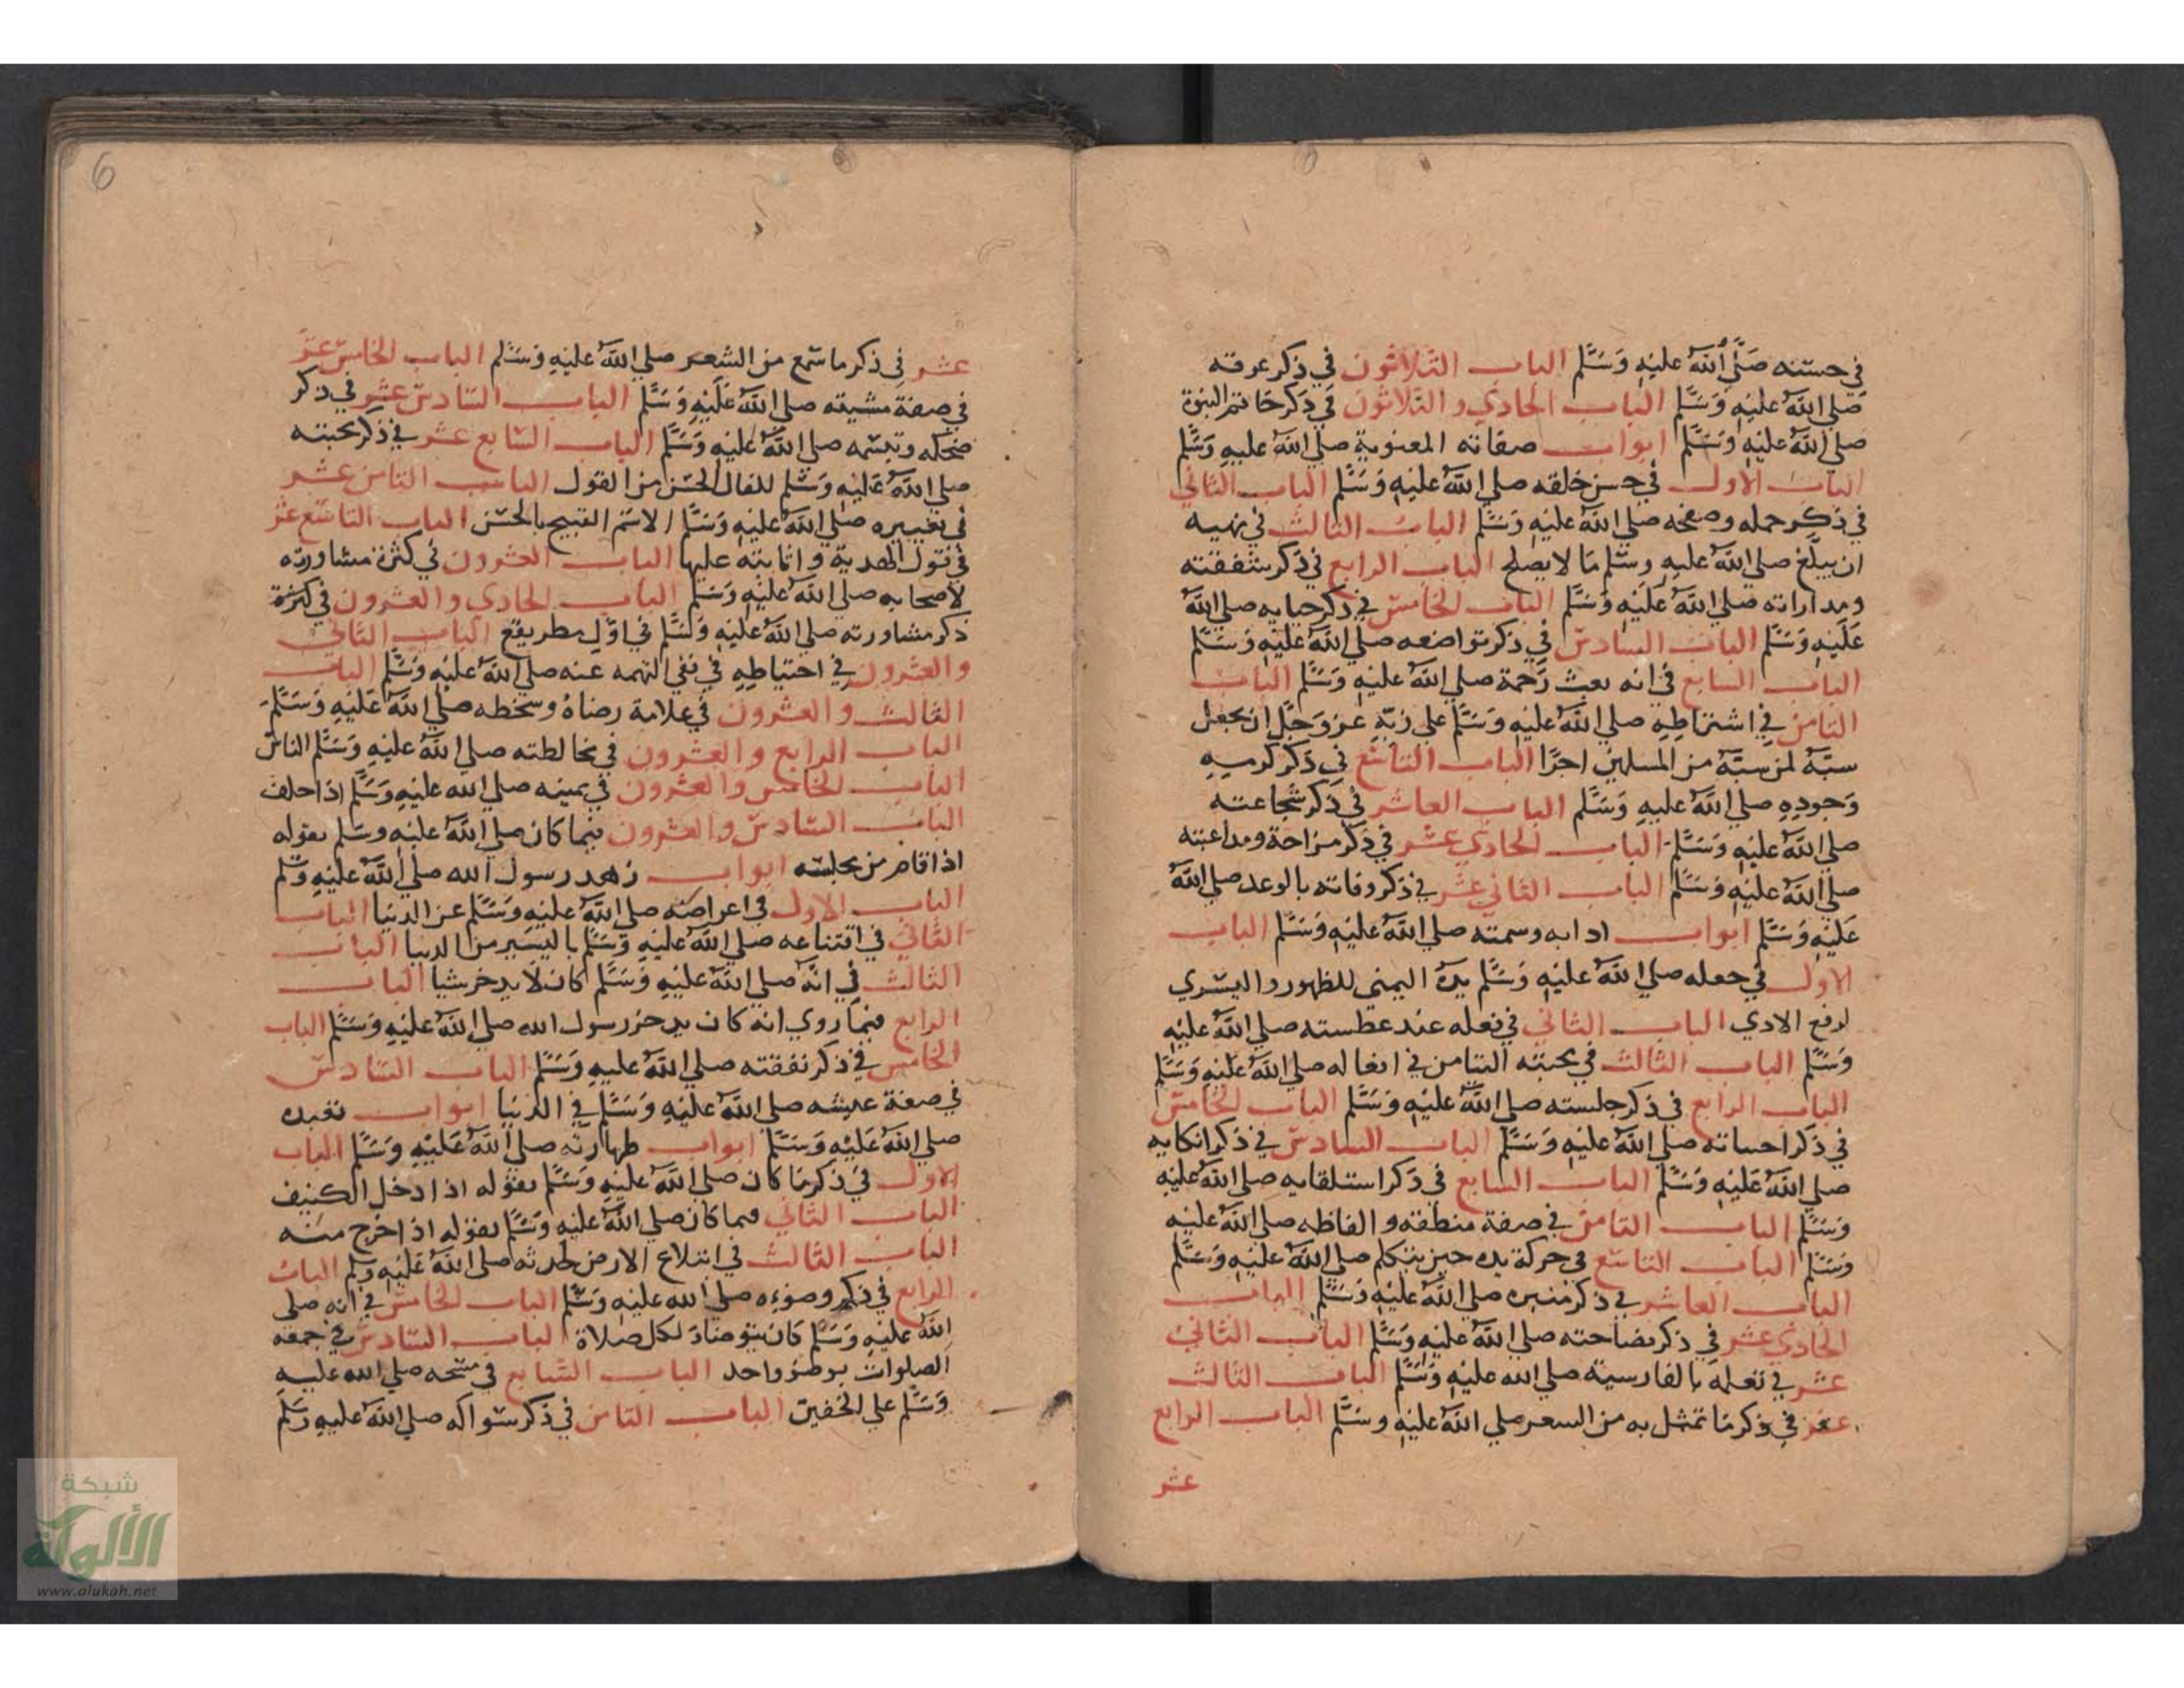 في حسنه صلي الله عليه وسلم الباب الثلاثون في ذكر عرقه
صلي الله عليه وسلم الباب الحادي والثلاثون في ذكر خاتم النبوة
صلي الله عليه وسلم ابواب صفاته المعنوية صلي الله عليه وسلم
الباب الاول في حسن خلقه صلي الله عليه وسلم الباب الثاني
في ذكر حمله وصفحه صلي الله عليه وسلم الباب الثالث في نهيه
ان يبلغ صلي الله عليه وسلم ما لا يصلح الباب الرابع في ذكر شفقته
ومداراته صلي الله عليه وسلم الباب الخامس في ذكر حيايه صلي الله
عليه وسلم الباب السادس في ذكر تواضعه صلي الله عليه وسلم
الباب السابع في انه بعث رحمة صلي الله عليه وسلم الباب
الثامن في اشتراطه صلي الله عليه وسلم علي ربه عز وجل ان يجعل
سبه لمن سبه من المسلمين اجرا الباب التاسع في ذكر كرمه
وجوده صلي الله عليه وسلم الباب العاشر في ذكر شجاعته
صلي الله عليه وسلم الباب الحادي عشر في ذكر مزاحة ومداعبته
صلي الله عليه وسلم الباب الثاني عشر في ذكر وفاته بالوعد صلي الله
عليه وسلم ابواب ادابه وسمته صلي الله عليه وسلم الباب
الاول في جعله صلي الله عليه وسلم يده اليمني للظهور واليسري
لدفع الادي الباب الثاني في فعله عند عطسته صلي الله عليه
وسلم الباب الثالث في محبته التيامن في افعاله صلي الله عليه وسلم
الباب الرابع في ذكر جلسته صلي الله عليه وسلم الباب الخامس
في ذكر احبباته صلي الله عليه وسلم الباب السادس في ذكر اتكايه
صلي الله عليه وسلم الباب السابع في ذكر استلقايه صلي الله عليه
وسلم الباب الثامن في صفة منطقه والفاظه صلي الله عليه
وسلم الباب التاسع في حركة يده حين يتكلم صلي الله عليه وسلم
الباب العاشر في ذكر منبره صلي الله عليه وسلم الباب
الحادي عشر في ذكر فصاحته صلي الله عليه وسلم الباب الثاني
عشر في تعلمه بالفارسية صلي الله عليه وسلم الباب الثالث
عشر في ذكر ما تمثل به من السعر صلي الله عليه وسلم الباب الرابع
عشر
6
عشر في ذكر ما سمع من الشعر صلي الله عليه وسلم الباب الخامس عشر
في صفة مشيته صلي الله عليه وسلم الباب السادس عشر في ذكر
ضحكه وتبسمه صلي الله عليه وسلم الباب السابع عشر في ذكر محبته
صلي الله عليه وسلم للفال الحسن من القول الباب الثامن عشر
في تغييره صلي الله عليه وسلم الاسم القبيح بالحسن الباب التاسع عشر
في قبول الهدية واثابته عليها الباب العشرون في كثرة مشاورته
لاصحابه صلي الله عليه وسلم الباب الحادي والعشرون في كثرة
ذكر مشاورته صلي الله عليه وسلم في اول مطر يقع الباب الثاني
والعشرون في احتياطه في نفي التهمه عنه صلي الله عليه وسلم الباب
الثالث والعشرون في علامة رضاه وسخطه صلي الله عليه وسلم
الباب الرابع والعشرون في مخالطته صلي الله عليه وسلم الناس
الباب الخامس والعشرون في يمينه صلي الله عليه وسلم اذا حلف
الباب السادس والعشرون فيما كان صلي الله عليه وسلم يقوله
اذا قام من مجلسه ابواب زهد رسول الله صلي الله عليه وسلم
الباب الاول في اعراضه صلي الله عليه وسلم عن الدنيا الباب
الثاني في اقتناعه صلي الله عليه وسلم باليسير من الدنيا الباب
الثالث في انه صلي الله عليه وسلم كان لا يدخر شيا الباب
الرابع فيما روي انه كان يدخر رسول الله صلي الله عليه وسلم الباب
الخامس في ذكر نفقته صلي الله عليه وسلم الباب السادس
في صفة عيشه صلي الله عليه وسلم في الدنيا ابواب تعبده
صلي الله عليه وسلم ابواب طهارته صلي الله عليه وسلم الباب
الاول في ذكر ما كان صلي الله عليه وسلم يقوله اذا دخل الكنيف
الباب الثاني فيما كان صلي الله عليه وسلم يقوله اذا خرج منه
الباب الثالث في ابتلاع الارض لحدثه صلي الله عليه وسلم الباب
الرابع في ذكر وضوءه صلي الله عليه وسلم الباب الخامس في انه صلي
الله عليه وسلم كان يتوضأ لكل صلاة الباب السادس في جمعه
الصلوات بوضؤ واحد الباب السابع في مسحه صلي الله عليه
وسلم علي الخفين الباب الثامن في ذكر سواكه صلي الله عليه وسلم
شبكة
الألوكة
www.alukah.net